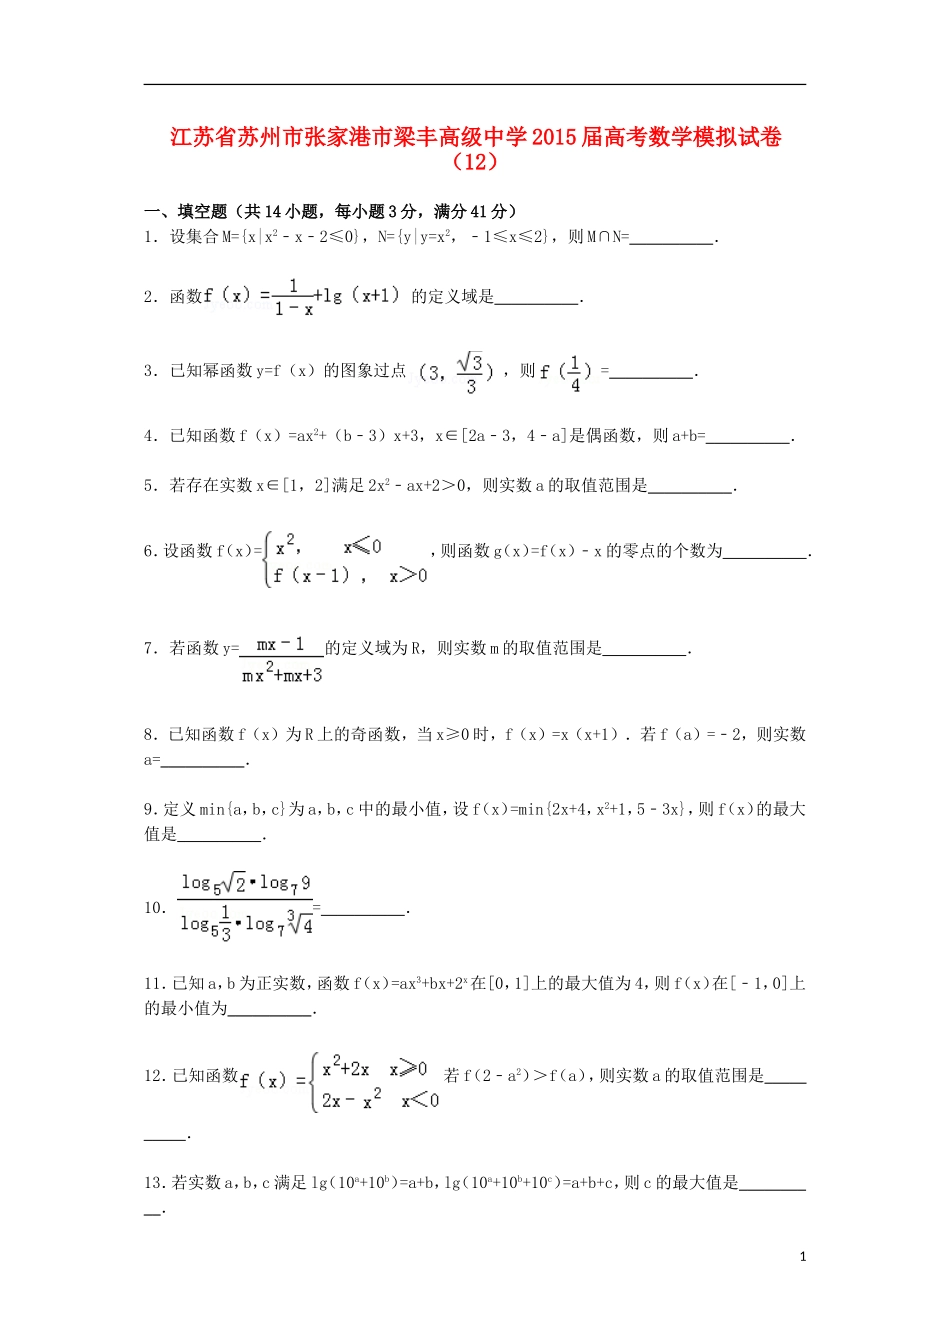 江苏省苏州市张家港市梁丰高级中学 2015 届高考数学模拟试卷
（12）
一、填空题（共 14 小题，每小题 3 分，满分 41 分）
1．设集合 M={x|x²﹣x﹣2≤0}，N={y|y=x²，﹣1≤x≤2}，则 M∩N=__________．
2．函数f（x）=1/(1-x)+lg（x+1）的定义域是__________．
3．已知幂函数 y=f（x）的图象过点（3，√3/3），则 f（1/4）=__________．
4．已知函数 f（x）=ax²+（b﹣3）x+3，x∈[2a﹣3，4﹣a]是偶函数，则 a+b=__________．
5．若存在实数 x∈[1，2]满足 2x²﹣ax+2＞0，则实数 a 的取值范围是__________．
6．设函数 f（x）={x²， x≤0
f（x-1）， x>0 ，则函数 g（x）=f（x）﹣x 的零点的个数为__________．
7．若函数 y=(mx-1)/(mx²+mx+3)的定义域为 R，则实数 m 的取值范围是__________．
8．已知函数 f（x）为 R 上的奇函数，当 x≥0 时，f（x）=x（x+1）．若 f（a）=﹣2，则实数
a=__________．
9．定义 min{a，b，c}为 a，b，c 中的最小值，设 f（x）=min{2x+4，x²+1，5﹣3x}，则 f（x）的最大
值是__________．
10．(log₅√2•log₇9)/(log₅(1/3)•log₇∛4)=__________．
11．已知 a，b 为正实数，函数 f（x）=ax³+bx+2ˣ在[0，1]上的最大值为 4，则 f（x）在[﹣1，0]上
的最小值为__________．
12．已知函数f（x）={x²+2x x≥0
2x-x² x<0 若 f（2﹣a²）＞f（a），则实数 a 的取值范围是_____
_____．
13．若实数 a，b，c 满足 lg（10ᵃ+10ᵇ）=a+b，lg（10ᵃ+10ᵇ+10ᶜ）=a+b+c，则 c 的最大值是________
__．
1